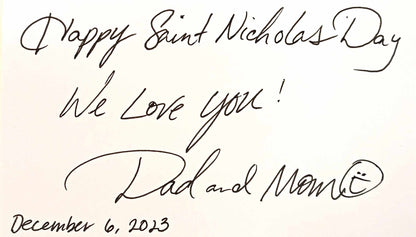 Happy Saint Nicholas Day
We Love you!
Dad and Mom
December 6, 2023